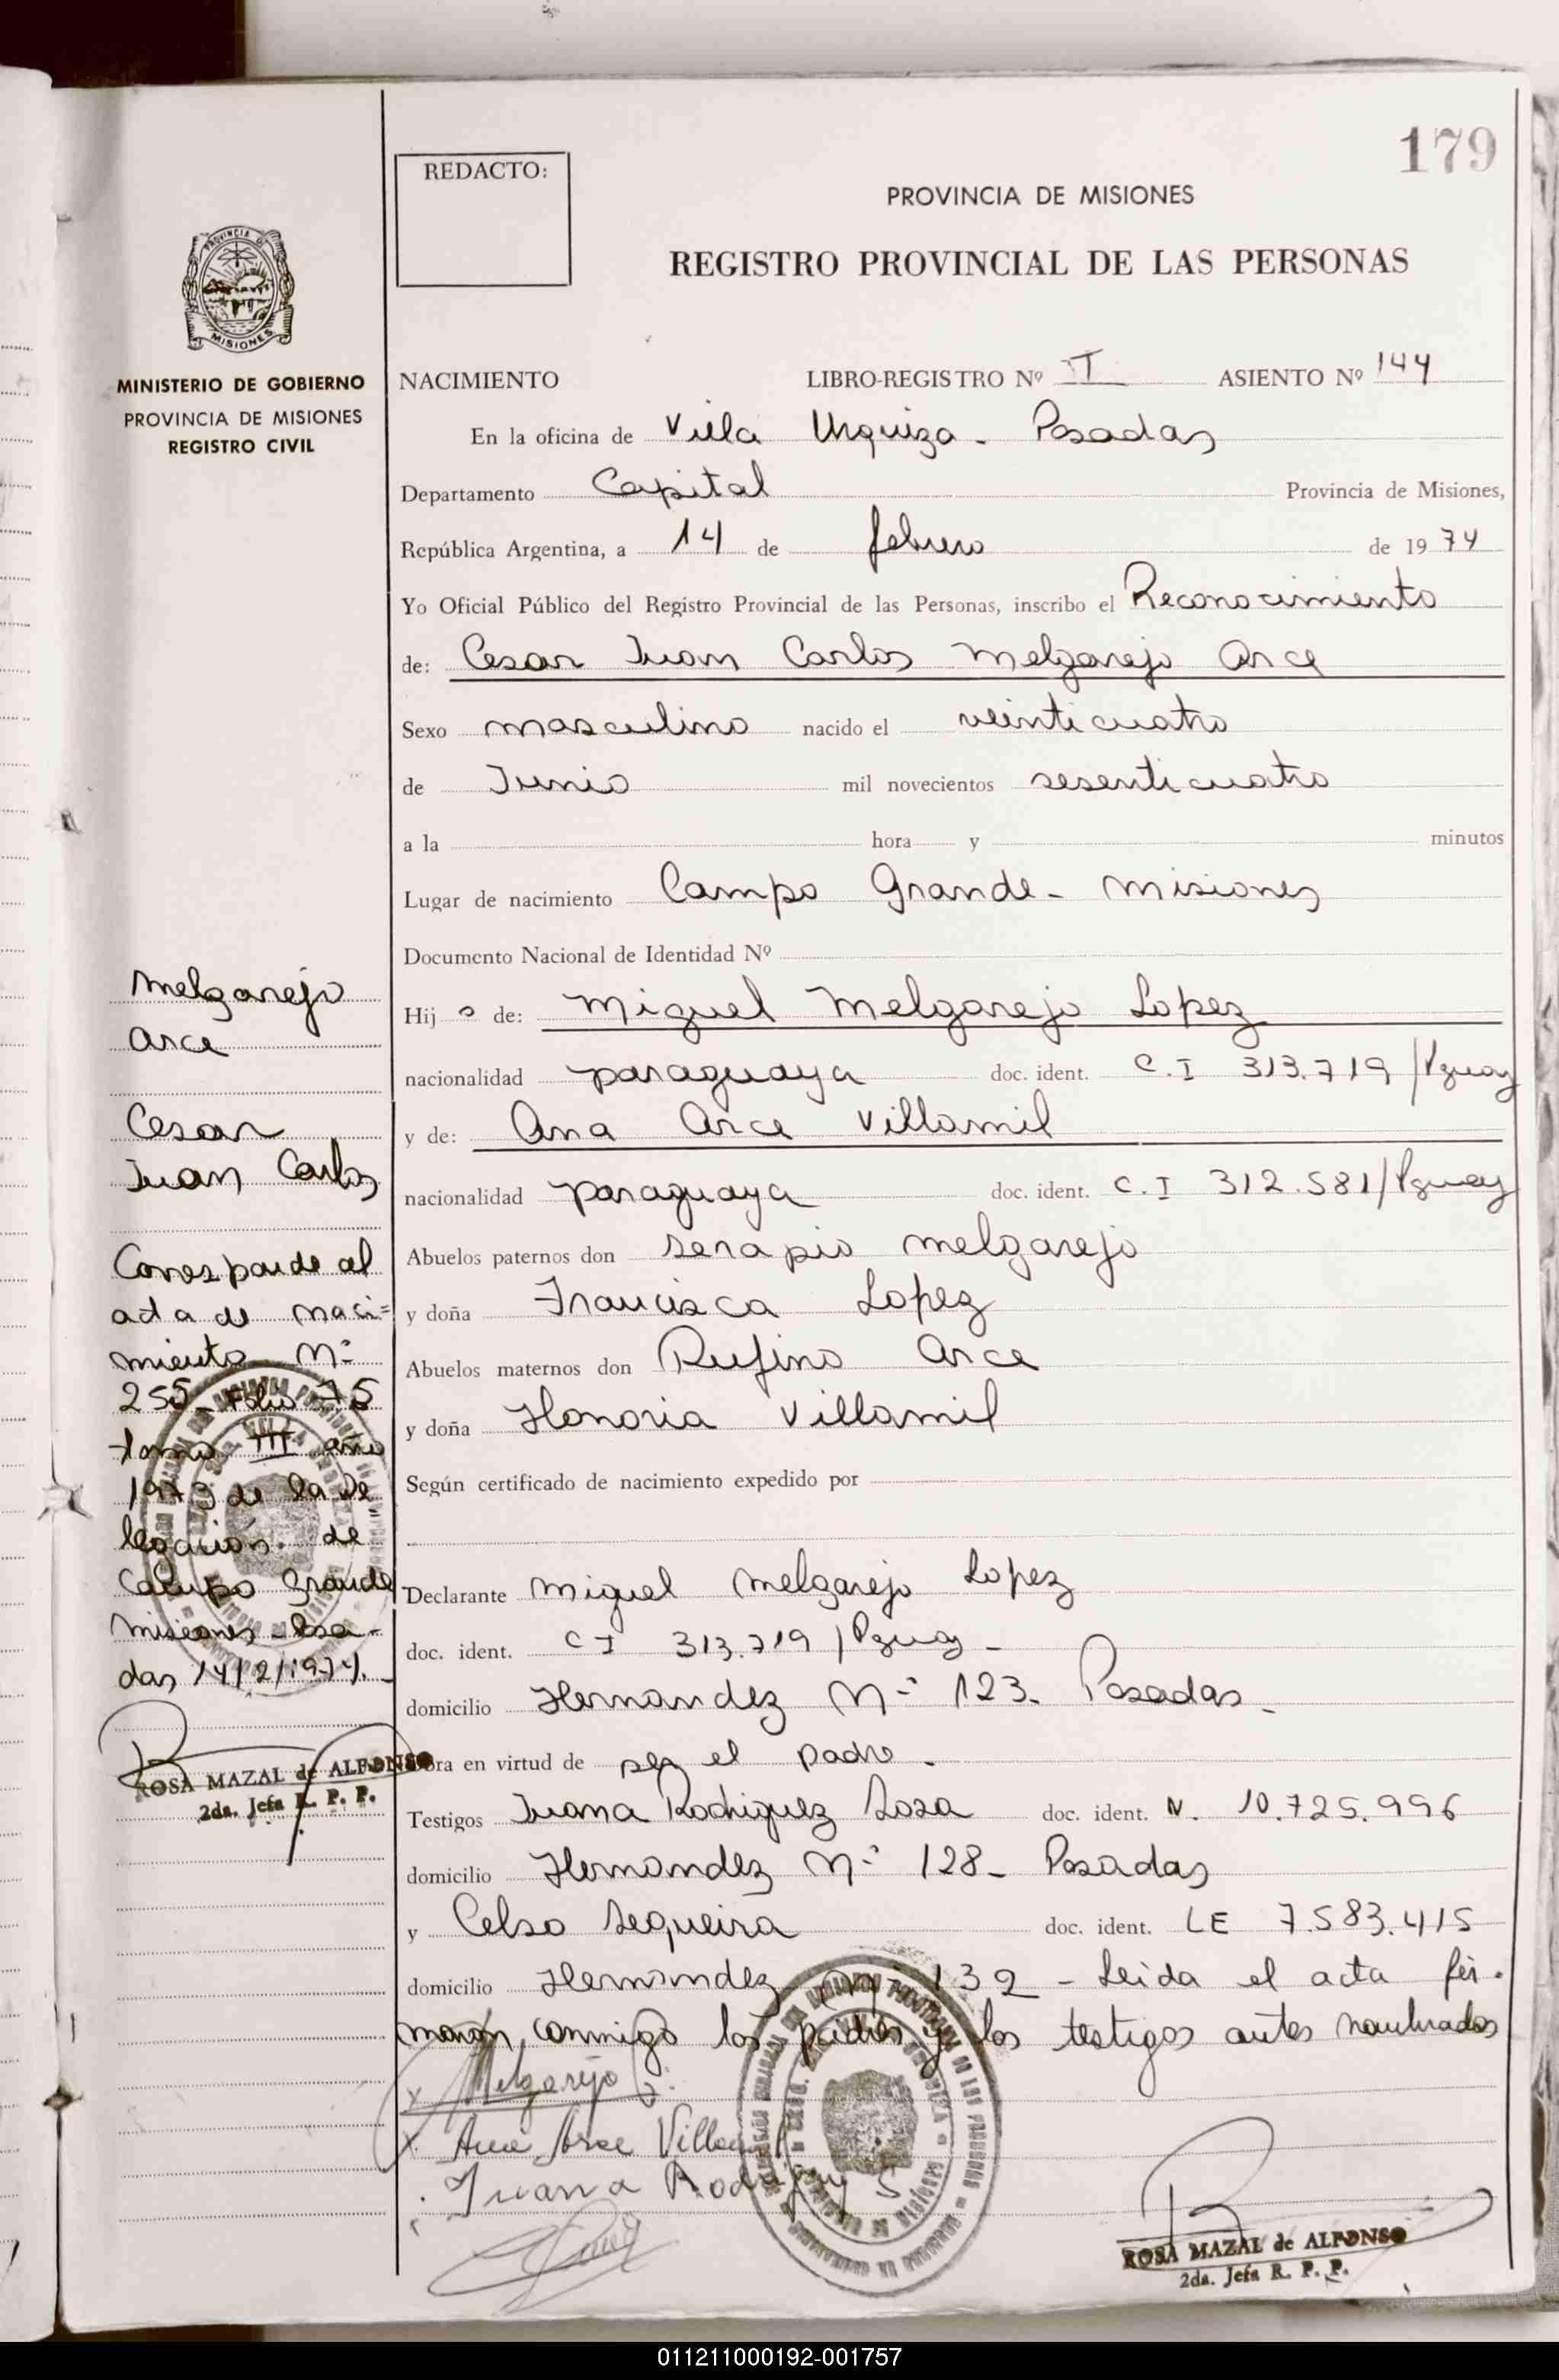 179
REDACTO:
PROVINCIA DE MISIONES
REGISTRO PROVINCIAL DE LAS PERSONAS
MISIONES
MINISTERIO DE GOBIERNO
PROVINCIA DE MISIONES
REGISTRO CIVIL
NACIMIENTO LIBRO-REGISTRO Nº II ASIENTO Nº 144
En la oficina de Villa Urquiza - Posadas
Departamento Capital Provincia de Misiones,
República Argentina, a 14 de febrero de 1974
Yo Oficial Público del Registro Provincial de las Personas, inscribo el Reconocimiento
de: Cesar Juan Carlos Melgarejo Arce
Sexo masculino nacido el veinticuatro
de Junio mil novecientos sesenticuatro
a la hora y minutos
Lugar de nacimiento Campo Grande - Misiones
Documento Nacional de Identidad Nº
Hijo de: Miguel Melgarejo Lopez
nacionalidad paraguaya doc. ident. C.I 313.719/Pguay
y de: Ana Arce Villamil
nacionalidad paraguaya doc. ident. C.I 312.581/Pguay
Abuelos paternos don Serapio Melgarejo
y doña Francisca Lopez
Abuelos maternos don Rufino Arce
y doña Honoria Villamil
Según certificado de nacimiento expedido por
Declarante Miguel Melgarejo Lopez
doc. ident. C I 313.719/Pguay -
domicilio Hernandez Nº 123. Posadas -
obra en virtud de ser el padre -
Testigos Juana Rodriguez Sosa doc. ident. N. 10.725.996
domicilio Hernandez Nº 128 - Posadas
y Celso Sequeira doc. ident. LE 7.583.415
domicilio Hernandez Nº 132 - Leida el acta fir-
maron conmigo los padres y los testigos antes nombrados
Melgarejo
Ana Arce Villamil
Juana Rodriguez S
ROSA MAZAL de ALFONSO
2da. Jefa R. P. P.
Melgarejo
Arce
Cesar
Juan Carlos
Corresponde al
acta de naci=
miento Nº
255 - Folio 75
tomo III año
1973 de la De
legación de
Campo Grande
Misiones - Posa-
das 14/2/1974.
ROSA MAZAL de ALFONSO
2da. Jefa R. P. P.
011211000192-001757